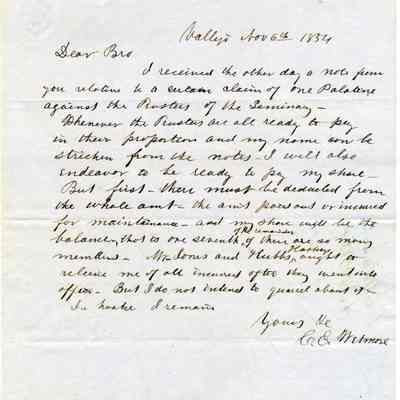 Valley's Nov 6th 1834
Dear Bro
I received the other day a note from
you relative to a certain claim of one Palatene
against the Trustees of the Seminary –
Whenever the Trustees are all ready to pay
in their proportion and my name can be
stricken from the notes – I will also
endeavor to be ready to pay my share –
But first – there must be deducted from
the whole amt – the amt paid out or incured
for maintainance – and my share will be the
balance, that is one seventh, of the remainder if there are so many
members – Mr Jones and Hubbs, ought to
release me of all incured after they went into
office – But I do not intend to quarrel about it –
In haste I remain
Yours &c
C. E. Wetmore